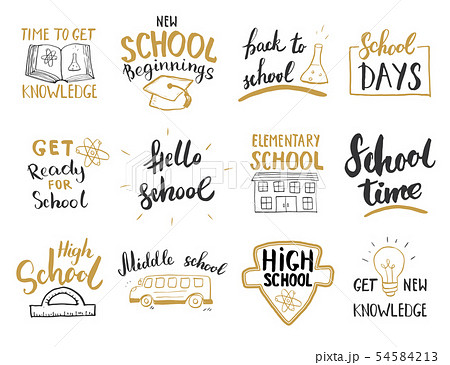 TIME TO GET
KNOWLEDGE
NEW
SCHOOL
Beginnings
back to
school
School
DAYS
GET
Ready
FOR
School
Hello
school
ELEMENTARY
SCHOOL
School
time
High
School
Middle school
HIGH
SCHOOL
GET NEW
KNOWLEDGE
pixta.jp - 54584213